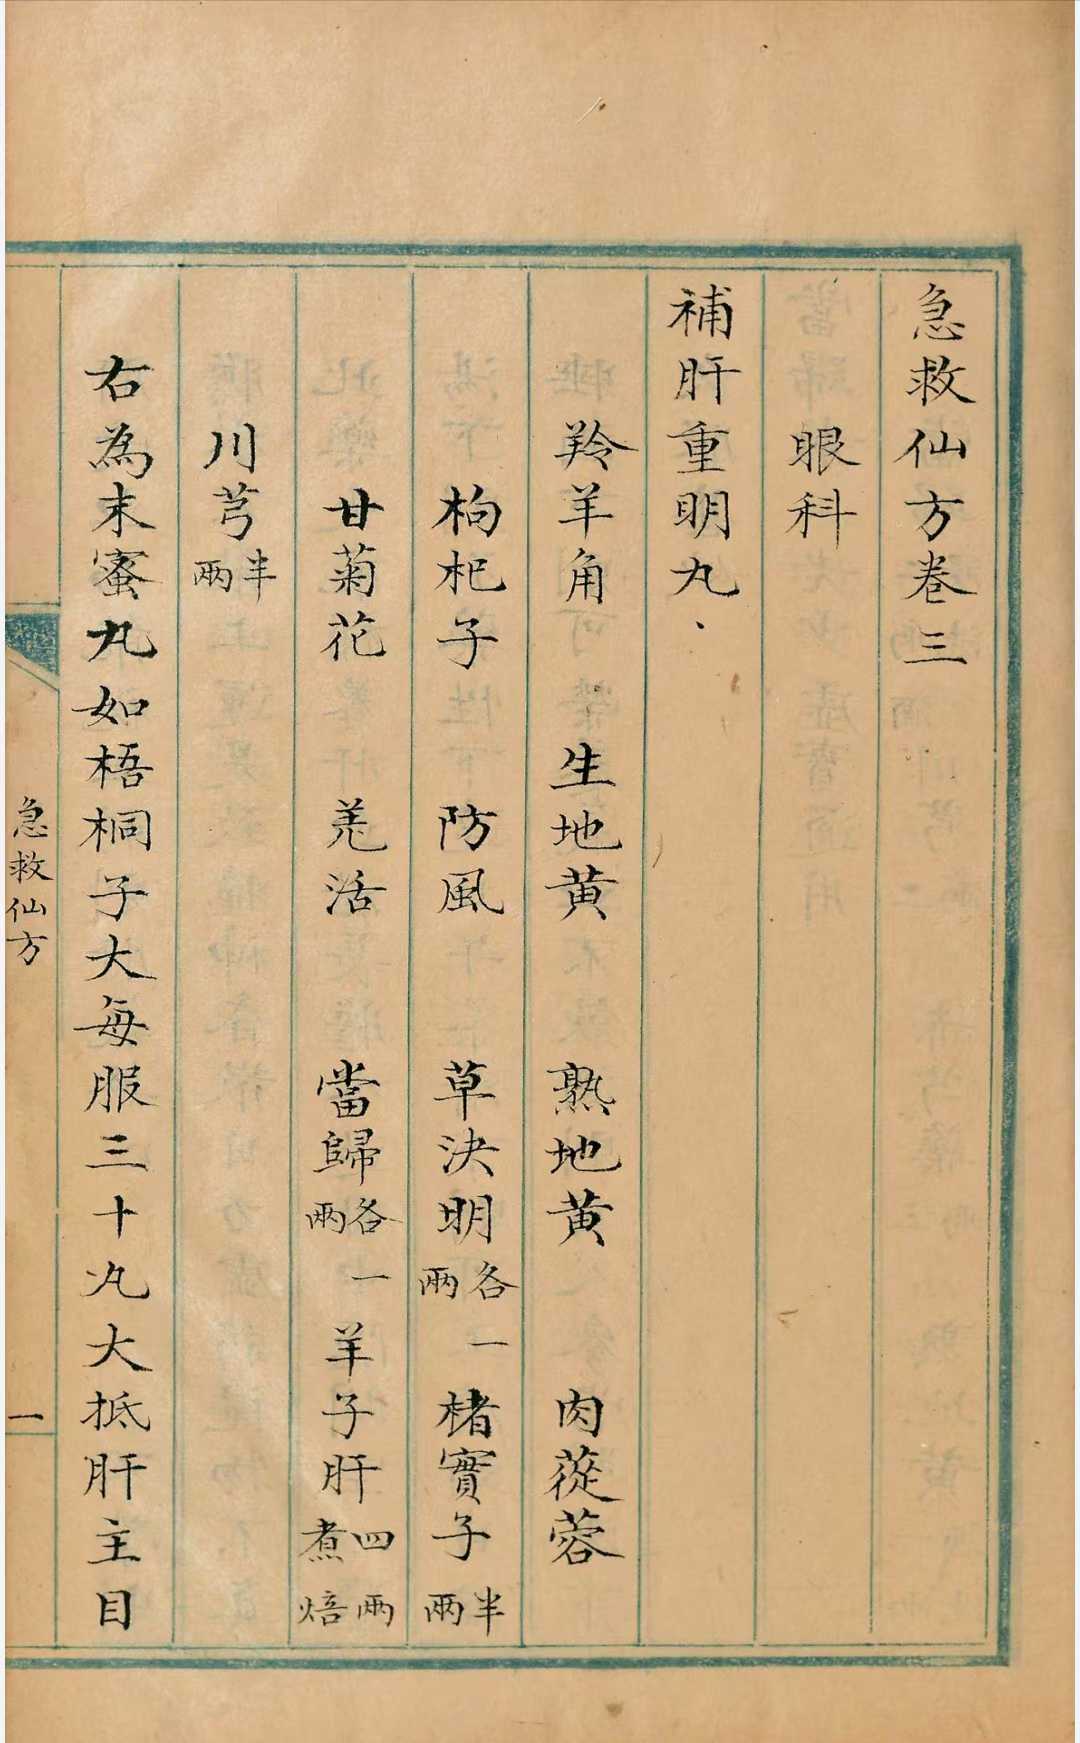 急救仙方卷三
眼科
補肝重明丸
羚羊角 生地黃 熟地黃 肉蓯蓉
枸杞子 防風 草決明各一兩 楮實子半兩
甘菊花 羌活 當歸各一兩 羊子肝四兩煮焙
川芎半兩
右為末蜜丸如梧桐子大每服三十丸大抵肝主目
急救仙方 一